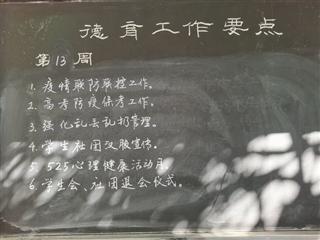 德育工作要点
第13周
1. 疫情联防联控工作。
2. 高考防疫保考工作。
3. 强化乱丢乱扔管理。
4. 学生社团汉服宣传。
5. 525心理健康活动月。
6. 学生会、社团退会仪式。